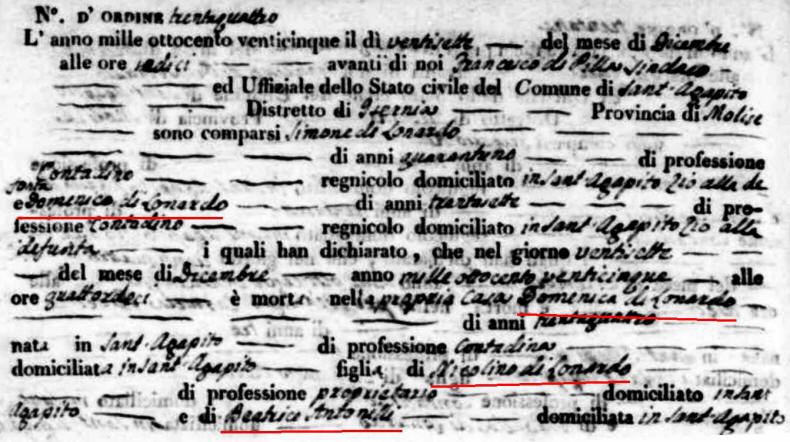 N°. D'ORDINE trentaquattro
L'anno mille ottocento venticinque il dì ventisette del mese di Dicembre
alle ore sedici avanti di noi Francesco di Pilla Sindaco
ed Uffiziale dello Stato civile del Comune di Sant'Agapito
Distretto di Isernia Provincia di Molise
sono comparsi Simone di Lonardo
di anni quarantuno di professione
Contadino regnicolo domiciliato in Sant'Agapito Zio alla de
funta
e Domenico di Lonardo di anni trentasette di pro-
fessione Contadino regnicolo domiciliato in Sant'Agapito Zio alla
defunta i quali han dichiarato, che nel giorno ventisette
del mese di Dicembre anno mille ottocento venticinque alle
ore quattordeci è morta nella propria Casa Domenica di Lonardo
di anni trentaquattro
nata in Sant'Agapito di professione Contadina
domiciliata in Sant'Agapito figlia di Nicolino di Lonardo
di professione proprietario domiciliato in Sant
Agapito e di Beatrice Antonilli domiciliata in Sant'Agapito